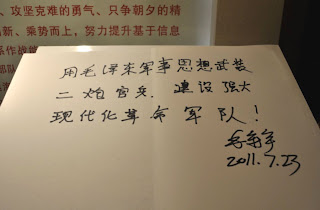 、攻坚克难的勇气、只争朝夕的精
新、乘势而上，努力提升基于信息
系作战
用毛泽东军事思想武装
二炮官兵，建设强大
现代化革命军队！
毛新宇
2011.7.23